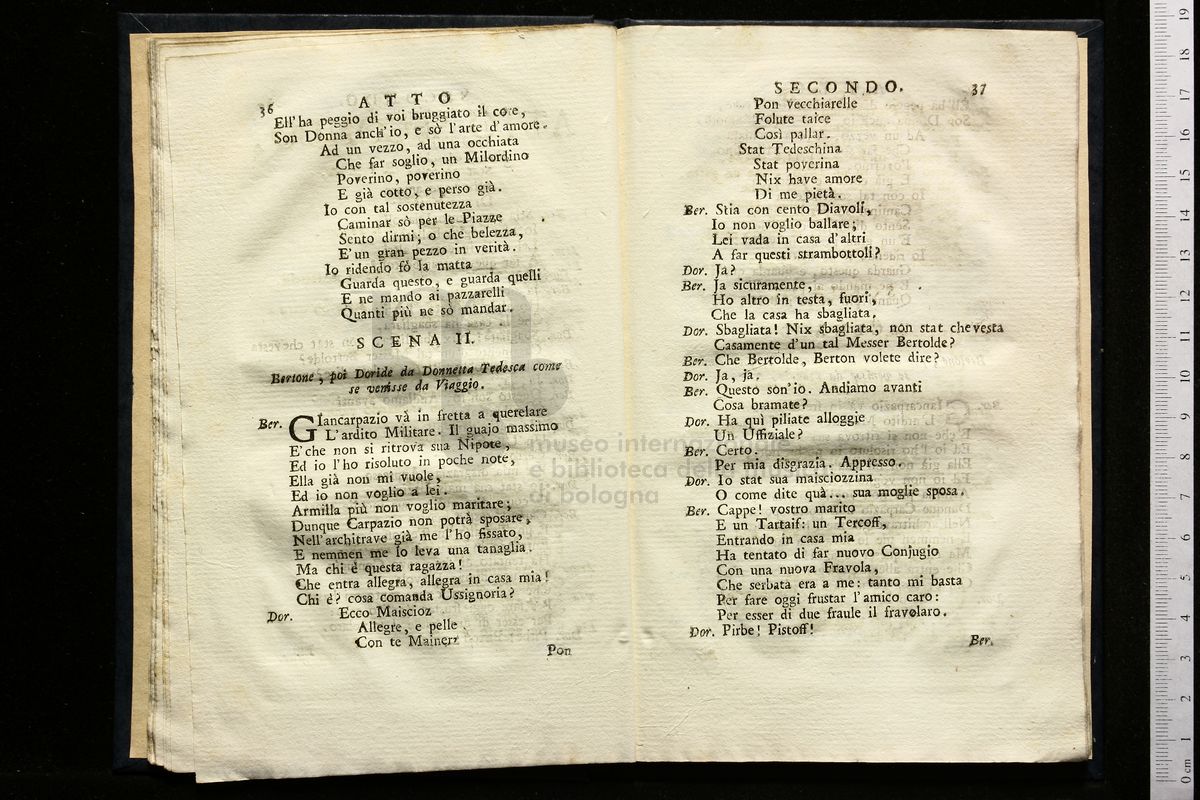 36 ATTO
Ell'ha peggio di voi bruggiato il core,
Son Donna anch'io, e sò l'arte d'amore.
Ad un vezzo, ad una occhiata
Che far soglio, un Milordino
Poverino, poverino
E già cotto, e perso già.
Io con tal sostenutezza
Caminar sò per le Piazze
Sento dirmi; o che belezza,
E'un gran pezzo in verità.
Io ridendo fò la matta
Guarda questo, e guarda quelli
E ne mando ai pazzarelli
Quanti più ne sò mandar.
SCENA II.
Bertone, poi Doride da Donnetta Tedesca come
se venisse da Viaggio.
Ber. GIancarpazio và in fretta a querelare
L'ardito Militare. Il guajo massimo
E'che non si ritrova sua Nipote,
Ed io l'ho risoluto in poche note,
Ella già non mi vuole,
Ed io non voglio a lei.
Armilla più non voglio maritare;
Dunque Carpazio non potrà sposare,
Nell'architrave già me l'ho fissato,
E nemmen me lo leva una tanaglia.
Ma chi è questa ragazza!
Che entra allegra, allegra in casa mia!
Chi è? cosa comanda Ussignoria?
Dor. Ecco Maiscioz
Allegre, e pelle
Con te Mainerz
Pon
SECONDO. 37
Pon vecchiarelle
Folute taice
Così pallar.
Stat Tedeschina
Stat poverina
Nix have amore
Di me pietà.
Ber. Stia con cento Diavoli,
Io non voglio ballare;
Lei vada in casa d'altri
A far questi strambottoli?
Dor. Ja?
Ber. Ja sicuramente,
Ho altro in testa, fuori,
Che la casa ha sbagliata.
Dor. Sbagliata! Nix sbagliata, non stat che vesta
Casamente d'un tal Messer Bertolde?
Ber. Che Bertolde, Berton volete dire?
Dor. Ja, ja.
Ber. Questo son'io. Andiamo avanti
Cosa bramate?
Dor. Ha quì piliate alloggie
Un Uffiziale?
Ber. Certo.
Per mia disgrazia. Appresso.
Dor. Io stat sua maisciozzina
O come dite quà... sua moglie sposa.
Ber. Cappe! vostro marito
E un Tartaif: un Tercoff,
Entrando in casa mia
Ha tentato di far nuovo Conjugio
Con una nuova Fravola,
Che serbata era a me: tanto mi basta
Per fare oggi frustar l'amico caro:
Per esser di due fraule il fravolaro.
Dor. Pirbe! Pistoff!
Ber.
museo internazionale
e biblioteca della
di bologna
0 cm 1 2 3 4 5 6 7 8 9 10 11 12 13 14 15 16 17 18 19